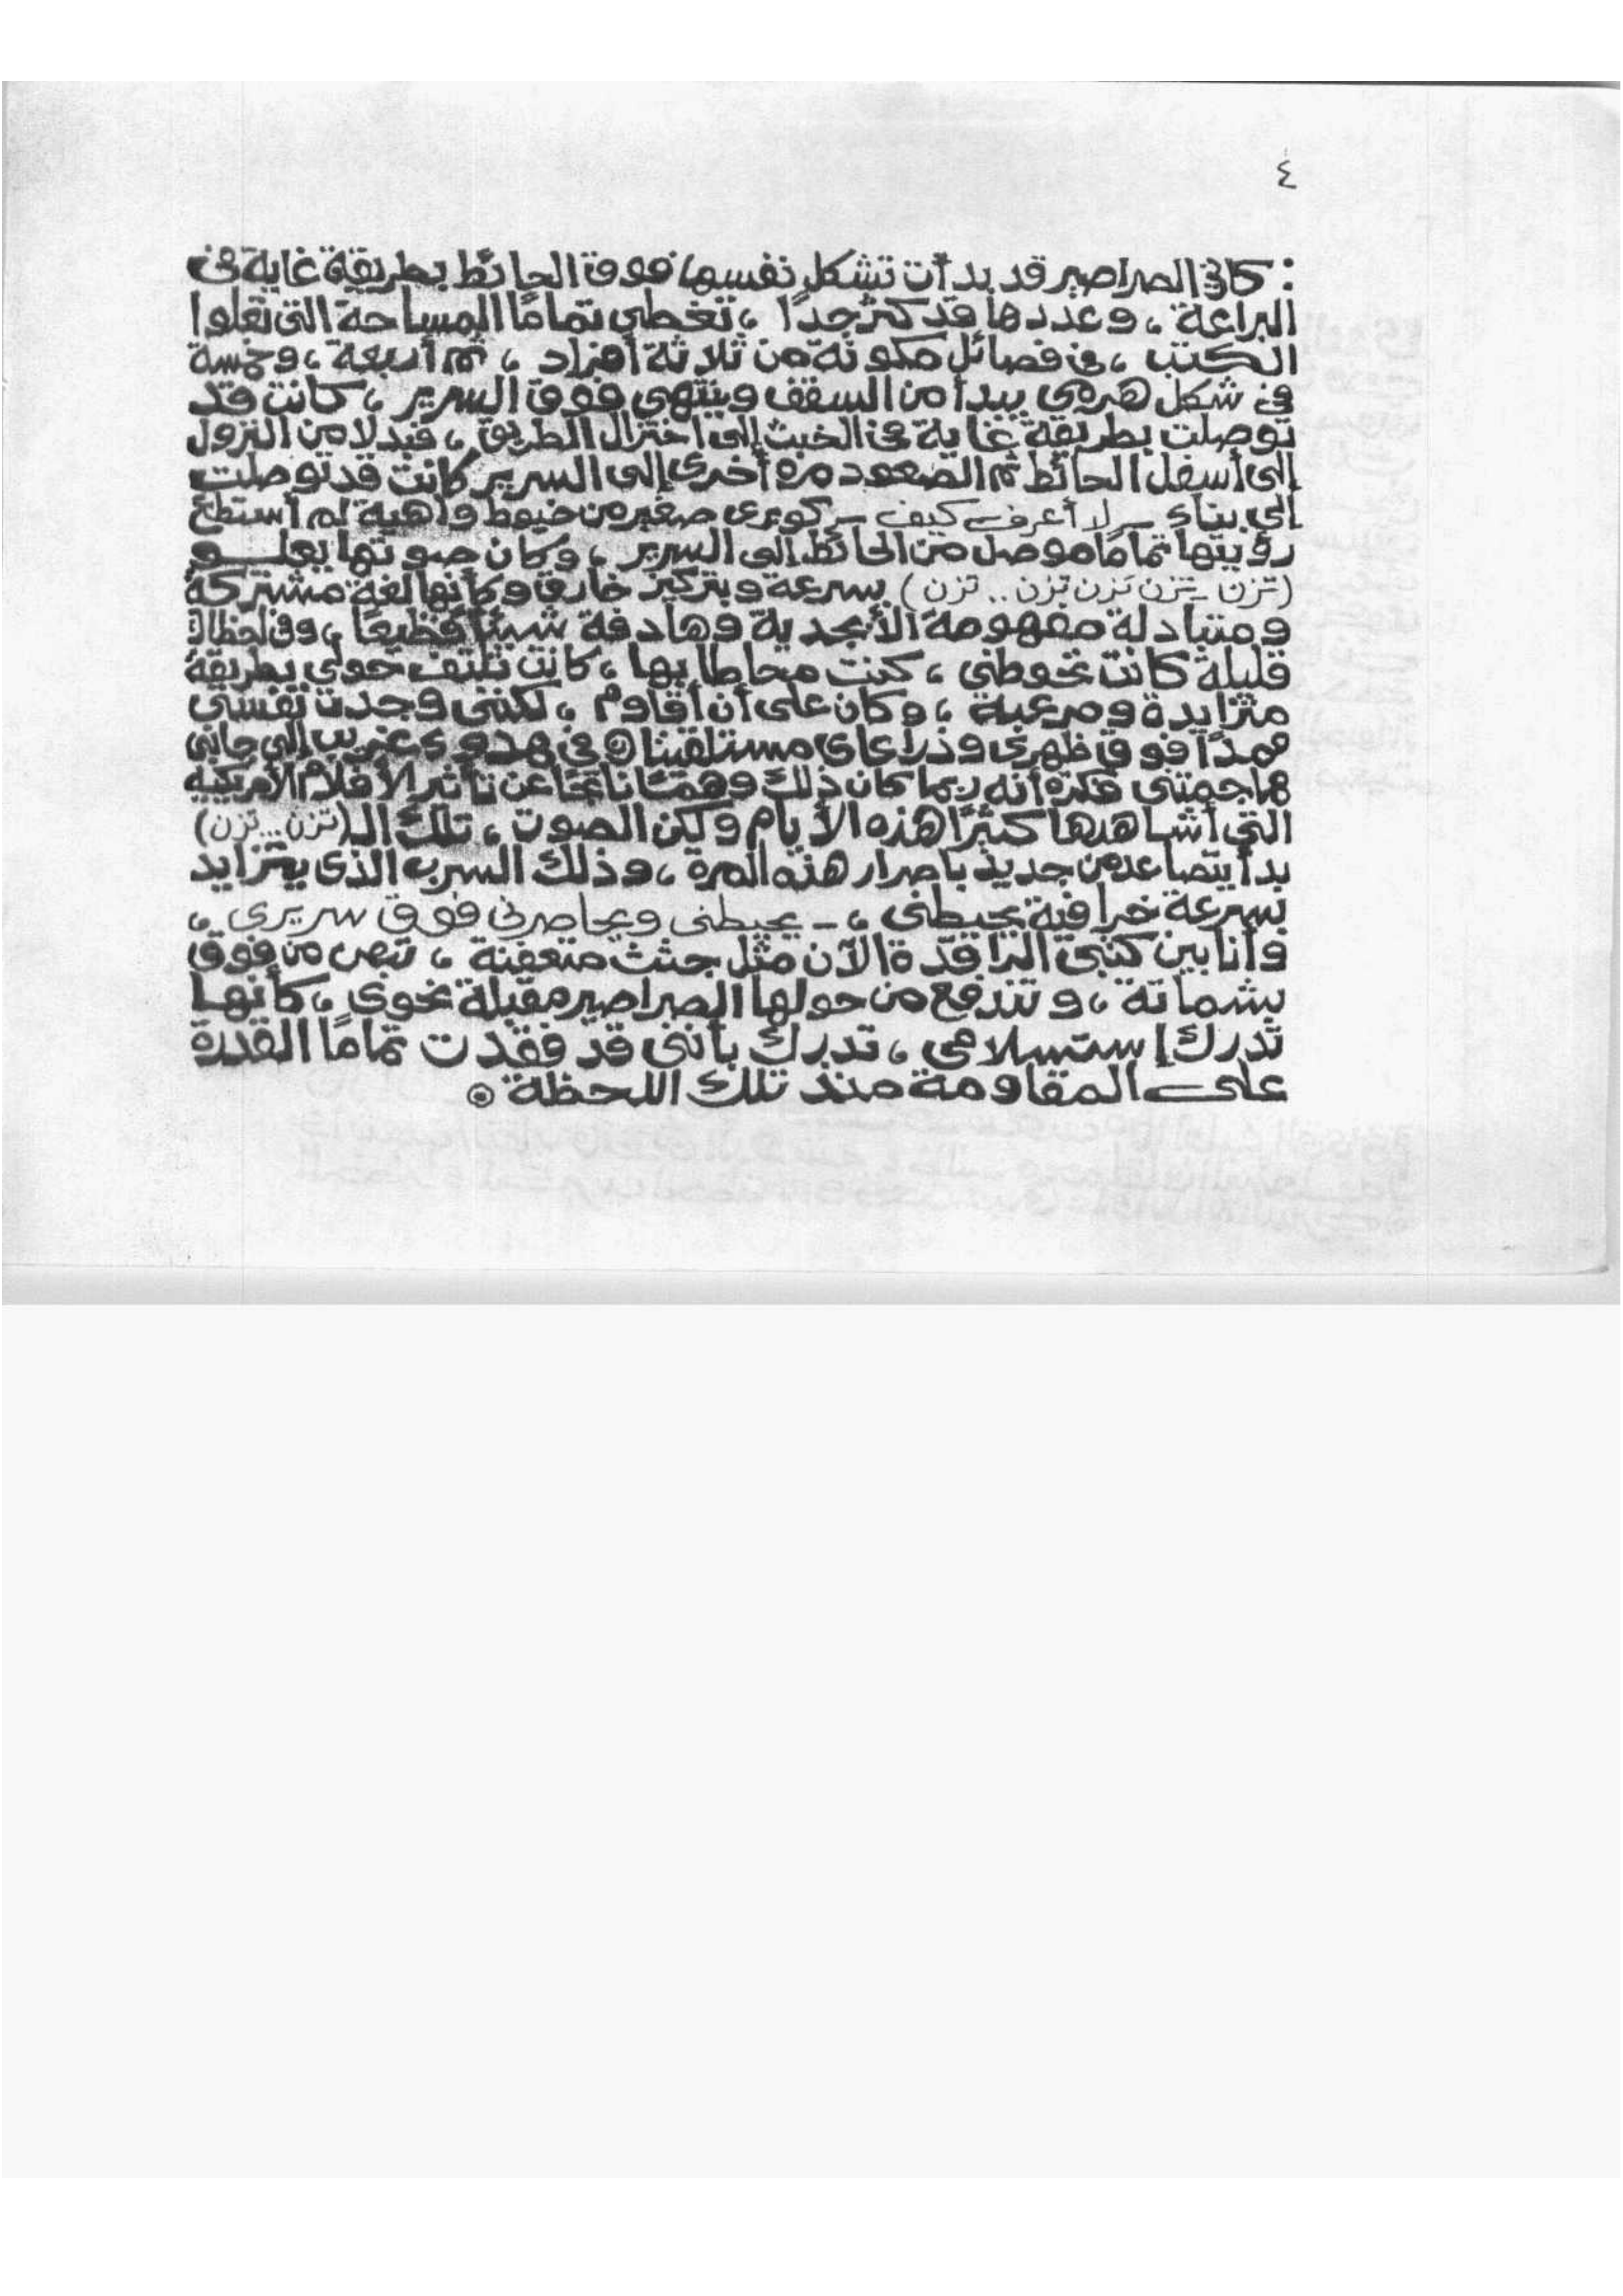 ٤
: كانت الصراصير قد بدأت تشكل نفسها فوق الحائط بطريقة غاية فى
البراعة ، وعددها قد كثر جدًا ، تغطي تمامًا المساحة التى تعلوا
الكتب ، فى فصائل مكونة من ثلاثة أفراد ، ثم أربعة ، وخمسة
فى شكل هرمى يبدأ من السقف وينتهى فوق السرير ، كانت قد
توصلت بطريقة غاية فى الخبث إلى اختزال الطريق ، فبدلا من النزول
إلى أسفل الحائط ثم الصعود مره أخرى إلى السرير كانت قد توصلت
إلى بناء – لا أعرف كيف – كوبرى صغير من خيوط واهية لم أستطع
رؤيتها تمامًا موصل من الحائط إلى السرير ، وكان صوتها يعلو
(تزن – تزن تزن تزن .. تزن) بسرعة وبتركيز خارق وكأنها لغة مشتركة
ومتبادلة مفهومة الأبجدية وهادفة شيئًا فظيعًا ، وفى لحظات
قليلة كانت تحوطنى ، كنت محاطا بها ، كانت تلتف حولى بطريقة
متزايدة ومرعبة ، وكان على أن أقاوم ، لكننى وجدت نفسى
ممدًا فوق ظهرى وذراعاى مستلقيتان فى هدوء غريب إلى جانبى
هاجمتنى فكرة أنه ربما كان ذلك وهمًا ناتجًا عن تأثير الأفلام الأمريكية
التى أشاهدها كثيرًا هذه الأيام ولكن الصوت ، تلك الـ (تزن ... تزن)
بدأ يتصاعد من جديد باصرار هذه المرة ، وذلك السرب الذى يتزايد
بسرعة خرافية يحيطنى ، – يحيطنى ويحاصرنى فوق سريرى ،
وأنا بين كتبى الراقدة الآن مثل جثث متعفنة ، تبص من فوق
بشماتة ، وتندفع من حولها الصراصير مقبلة نحوى ، كأنها
تدرك إستسلامى ، تدرك بأننى قد فقدت تمامًا القدرة
على المقاومة منذ تلك اللحظة ⊙